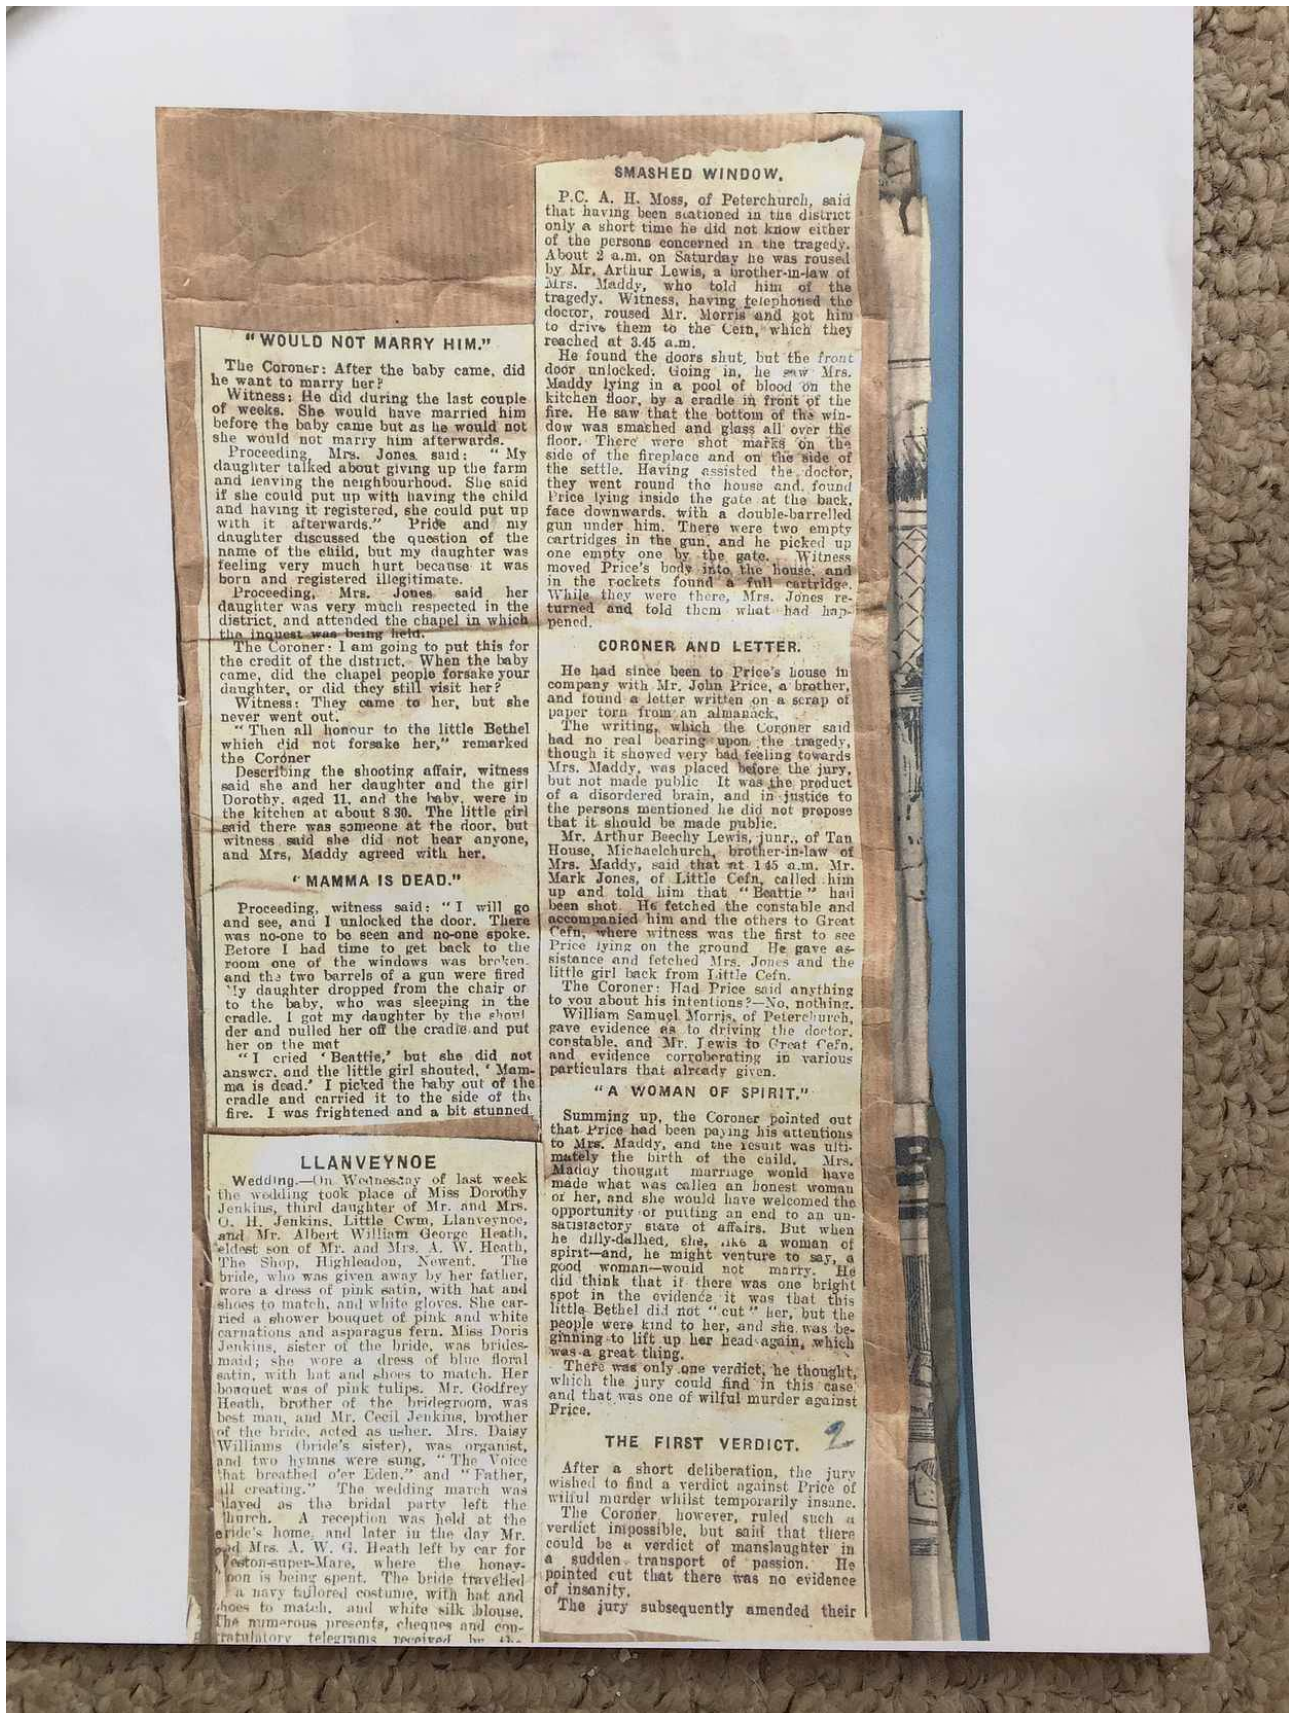 "WOULD NOT MARRY HIM."
The Coroner: After the baby came, did
he want to marry her?
Witness: He did during the last couple
of weeks. She would have married him
before the baby came but as he would not
she would not marry him afterwards.
Proceeding, Mrs. Jones said: "My
daughter talked about giving up the farm
and leaving the neighbourhood. She said
if she could put up with having the child
and having it registered, she could put up
with it afterwards." Price and my
daughter discussed the question of the
name of the child, but my daughter was
feeling very much hurt because it was
born and registered illegitimate.
Proceeding, Mrs. Jones said her
daughter was very much respected in the
district, and attended the chapel in which
the inquest was being held.
The Coroner: I am going to put this for
the credit of the district. When the baby
came, did the chapel people forsake your
daughter, or did they still visit her?
Witness: They came to her, but she
never went out.
"Then all honour to the little Bethel
which did not forsake her," remarked
the Coroner
Describing the shooting affair, witness
said she and her daughter and the girl
Dorothy, aged 11, and the baby, were in
the kitchen at about 8.30. The little girl
said there was someone at the door, but
witness said she did not hear anyone,
and Mrs. Maddy agreed with her.
"MAMMA IS DEAD."
Proceeding, witness said: "I will go
and see, and I unlocked the door. There
was no-one to be seen and no-one spoke.
Before I had time to get back to the
room one of the windows was broken,
and the two barrels of a gun were fired
My daughter dropped from the chair on
to the baby, who was sleeping in the
cradle. I got my daughter by the shoul
der and pulled her off the cradle and put
her on the mat
"I cried 'Beattie,' but she did not
answer, and the little girl shouted, 'Mam-
ma is dead.' I picked the baby out of the
cradle and carried it to the side of the
fire. I was frightened and a bit stunned
LLANVEYNOE
Wedding.—On Wednesday of last week
the wedding took place of Miss Dorothy
Jenkins, third daughter of Mr. and Mrs.
O. H. Jenkins, Little Cwm, Llanveynoe,
and Mr. Albert William George Heath,
eldest son of Mr. and Mrs. A. W. Heath,
The Shop, Highleadon, Newent. The
bride, who was given away by her father,
wore a dress of pink satin, with hat and
shoes to match, and white gloves. She car-
ried a shower bouquet of pink and white
carnations and asparagus fern. Miss Doris
Jenkins, sister of the bride, was brides-
maid; she wore a dress of blue floral
satin, with hat and shoes to match. Her
bouquet was of pink tulips. Mr. Godfrey
Heath, brother of the bridegroom, was
best man, and Mr. Cecil Jenkins, brother
of the bride, acted as usher. Mrs. Daisy
Williams (bride's sister), was organist,
and two hymns were sung, "The Voice
that breathed o'er Eden," and "Father,
all creating." The wedding march was
played as the bridal party left the
church. A reception was held at the
bride's home, and later in the day Mr.
and Mrs. A. W. G. Heath left by car for
Weston-super-Mare, where the honey-
moon is being spent. The bride travelled
a navy tailored costume, with hat and
shoes to match, and white silk blouse.
The numerous presents, cheques and con-
gratulatory telegrams received by the
SMASHED WINDOW.
P.C. A. H. Moss, of Peterchurch, said
that having been stationed in the district
only a short time he did not know either
of the persons concerned in the tragedy.
About 2 a.m. on Saturday he was roused
by Mr. Arthur Lewis, a brother-in-law of
Mrs. Maddy, who told him of the
tragedy. Witness, having telephoned the
doctor, roused Mr. Morris and got him
to drive them to the Cefn, which they
reached at 3.45 a.m.
He found the doors shut, but the front
door unlocked. Going in, he saw Mrs.
Maddy lying in a pool of blood on the
kitchen floor, by a cradle in front of the
fire. He saw that the bottom of the win-
dow was smashed and glass all over the
floor. There were shot marks on the
side of the fireplace and on the side of
the settle. Having assisted the doctor,
they went round the house and found
Price lying inside the gate at the back,
face downwards, with a double-barrelled
gun under him. There were two empty
cartridges in the gun, and he picked up
one empty one by the gate. Witness
moved Price's body into the house, and
in the pockets found a full cartridge.
While they were there, Mrs. Jones re-
turned and told them what had hap-
pened.
CORONER AND LETTER.
He had since been to Price's house in
company with Mr. John Price, a brother,
and found a letter written on a scrap of
paper torn from an almanack.
The writing, which the Coroner said
had no real bearing upon the tragedy,
though it showed very bad feeling towards
Mrs. Maddy, was placed before the jury,
but not made public It was the product
of a disordered brain, and in justice to
the persons mentioned he did not propose
that it should be made public.
Mr. Arthur Beechy Lewis, junr., of Tan
House, Michaelchurch, brother-in-law of
Mrs. Maddy, said that at 1.45 a.m. Mr.
Mark Jones, of Little Cefn, called him
up and told him that "Beattie" had
been shot. He fetched the constable and
accompanied him and the others to Great
Cefn, where witness was the first to see
Price lying on the ground He gave as-
sistance and fetched Mrs. Jones and the
little girl back from Little Cefn.
The Coroner: Had Price said anything
to you about his intentions?—No, nothing.
William Samuel Morris, of Peterchurch,
gave evidence as to driving the doctor,
constable, and Mr. Lewis to Great Cefn,
and evidence corroberating in various
particulars that already given.
"A WOMAN OF SPIRIT."
Summing up, the Coroner pointed out
that Price had been paying his attentions
to Mrs. Maddy, and the result was ulti-
mately the birth of the child. Mrs.
Maddy thought marriage would have
made what was called an honest woman
of her, and she would have welcomed the
opportunity of putting an end to an un-
satisfactory state of affairs. But when
he dilly-dallied, she, like a woman of
spirit—and, he might venture to say, a
good woman—would not marry. He
did think that if there was one bright
spot in the evidence it was that this
little Bethel did not "cut" her, but the
people were kind to her, and she was be-
ginning to lift up her head again, which
was a great thing.
There was only one verdict, he thought,
which the jury could find in this case
and that was one of wilful murder against
Price.
THE FIRST VERDICT. 2
After a short deliberation, the jury
wished to find a verdict against Price of
wilful murder whilst temporarily insane.
The Coroner, however, ruled such a
verdict impossible, but said that there
could be a verdict of manslaughter in
a sudden transport of passion. He
pointed out that there was no evidence
of insanity.
The jury subsequently amended their